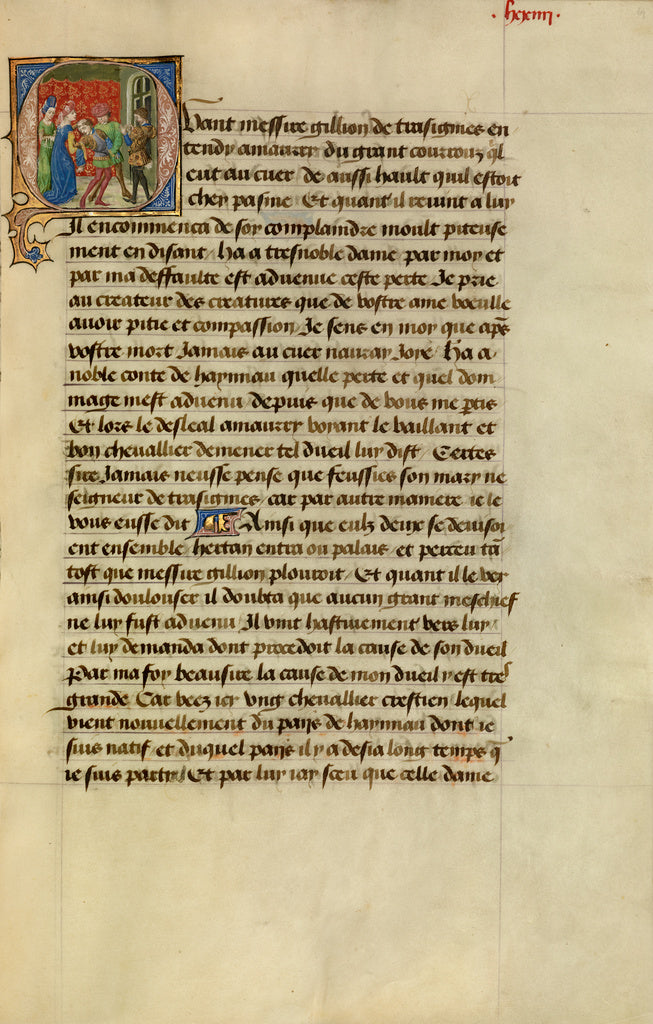 Quant messire gillion de trasignies en
tendy amaurry du grant courrouz ql
eut au cuer de aussi hault quil estoit
chey pasme Et quant il revint a luy
Il encommenca de soy complaindre moult piteuse
ment en disant / ha a tresnoble dame par moy et
par ma deffaulte est advenue ceste perte Je prie
au createur des creatures que de vostre ame voeulle
avoir pitie et compassion / Je sens en moy que aps
vostre mort Jamais au cuer nauray Joye / ha a
noble conte de haynnau quelle perte et quel dom
mage mest advenu depuis que de vous me ptis
Et lors le desleal amaurry voyant le vaillant et
bon chevallier demener tel dueil luy dist / Certes
sire Jamais neusse pense que feussies son mary ne
seigneur de trasignies car par autre maniere ie le
vous eusse dit Ainsi que eulz deux se devisoi
ent ensemble / hertan entra ou palais et perceu ta
tost que messire gillion plouroit / Et quant il le vey
ainsi doulouser il doubta que aucun grant meschief
ne luy fust advenu / Il vint hastivement vers luy /
et luy demanda dont procedoit la cause de son dueil
Par ma foy beau sire la cause de mon dueil y est tres
grande Car veez icy ung chevallier crestien lequel
vient nouvellement du pays de haynnau dont ie
suis natif et duquel pays il y a desia long temps q
ie suis party / Et par luy iay sceu que celle dame